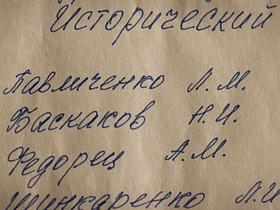 Исторический
Павличенко Л.М.
Баскаков Н.И.
Федорец А.М.
Шинкаренко Л.И